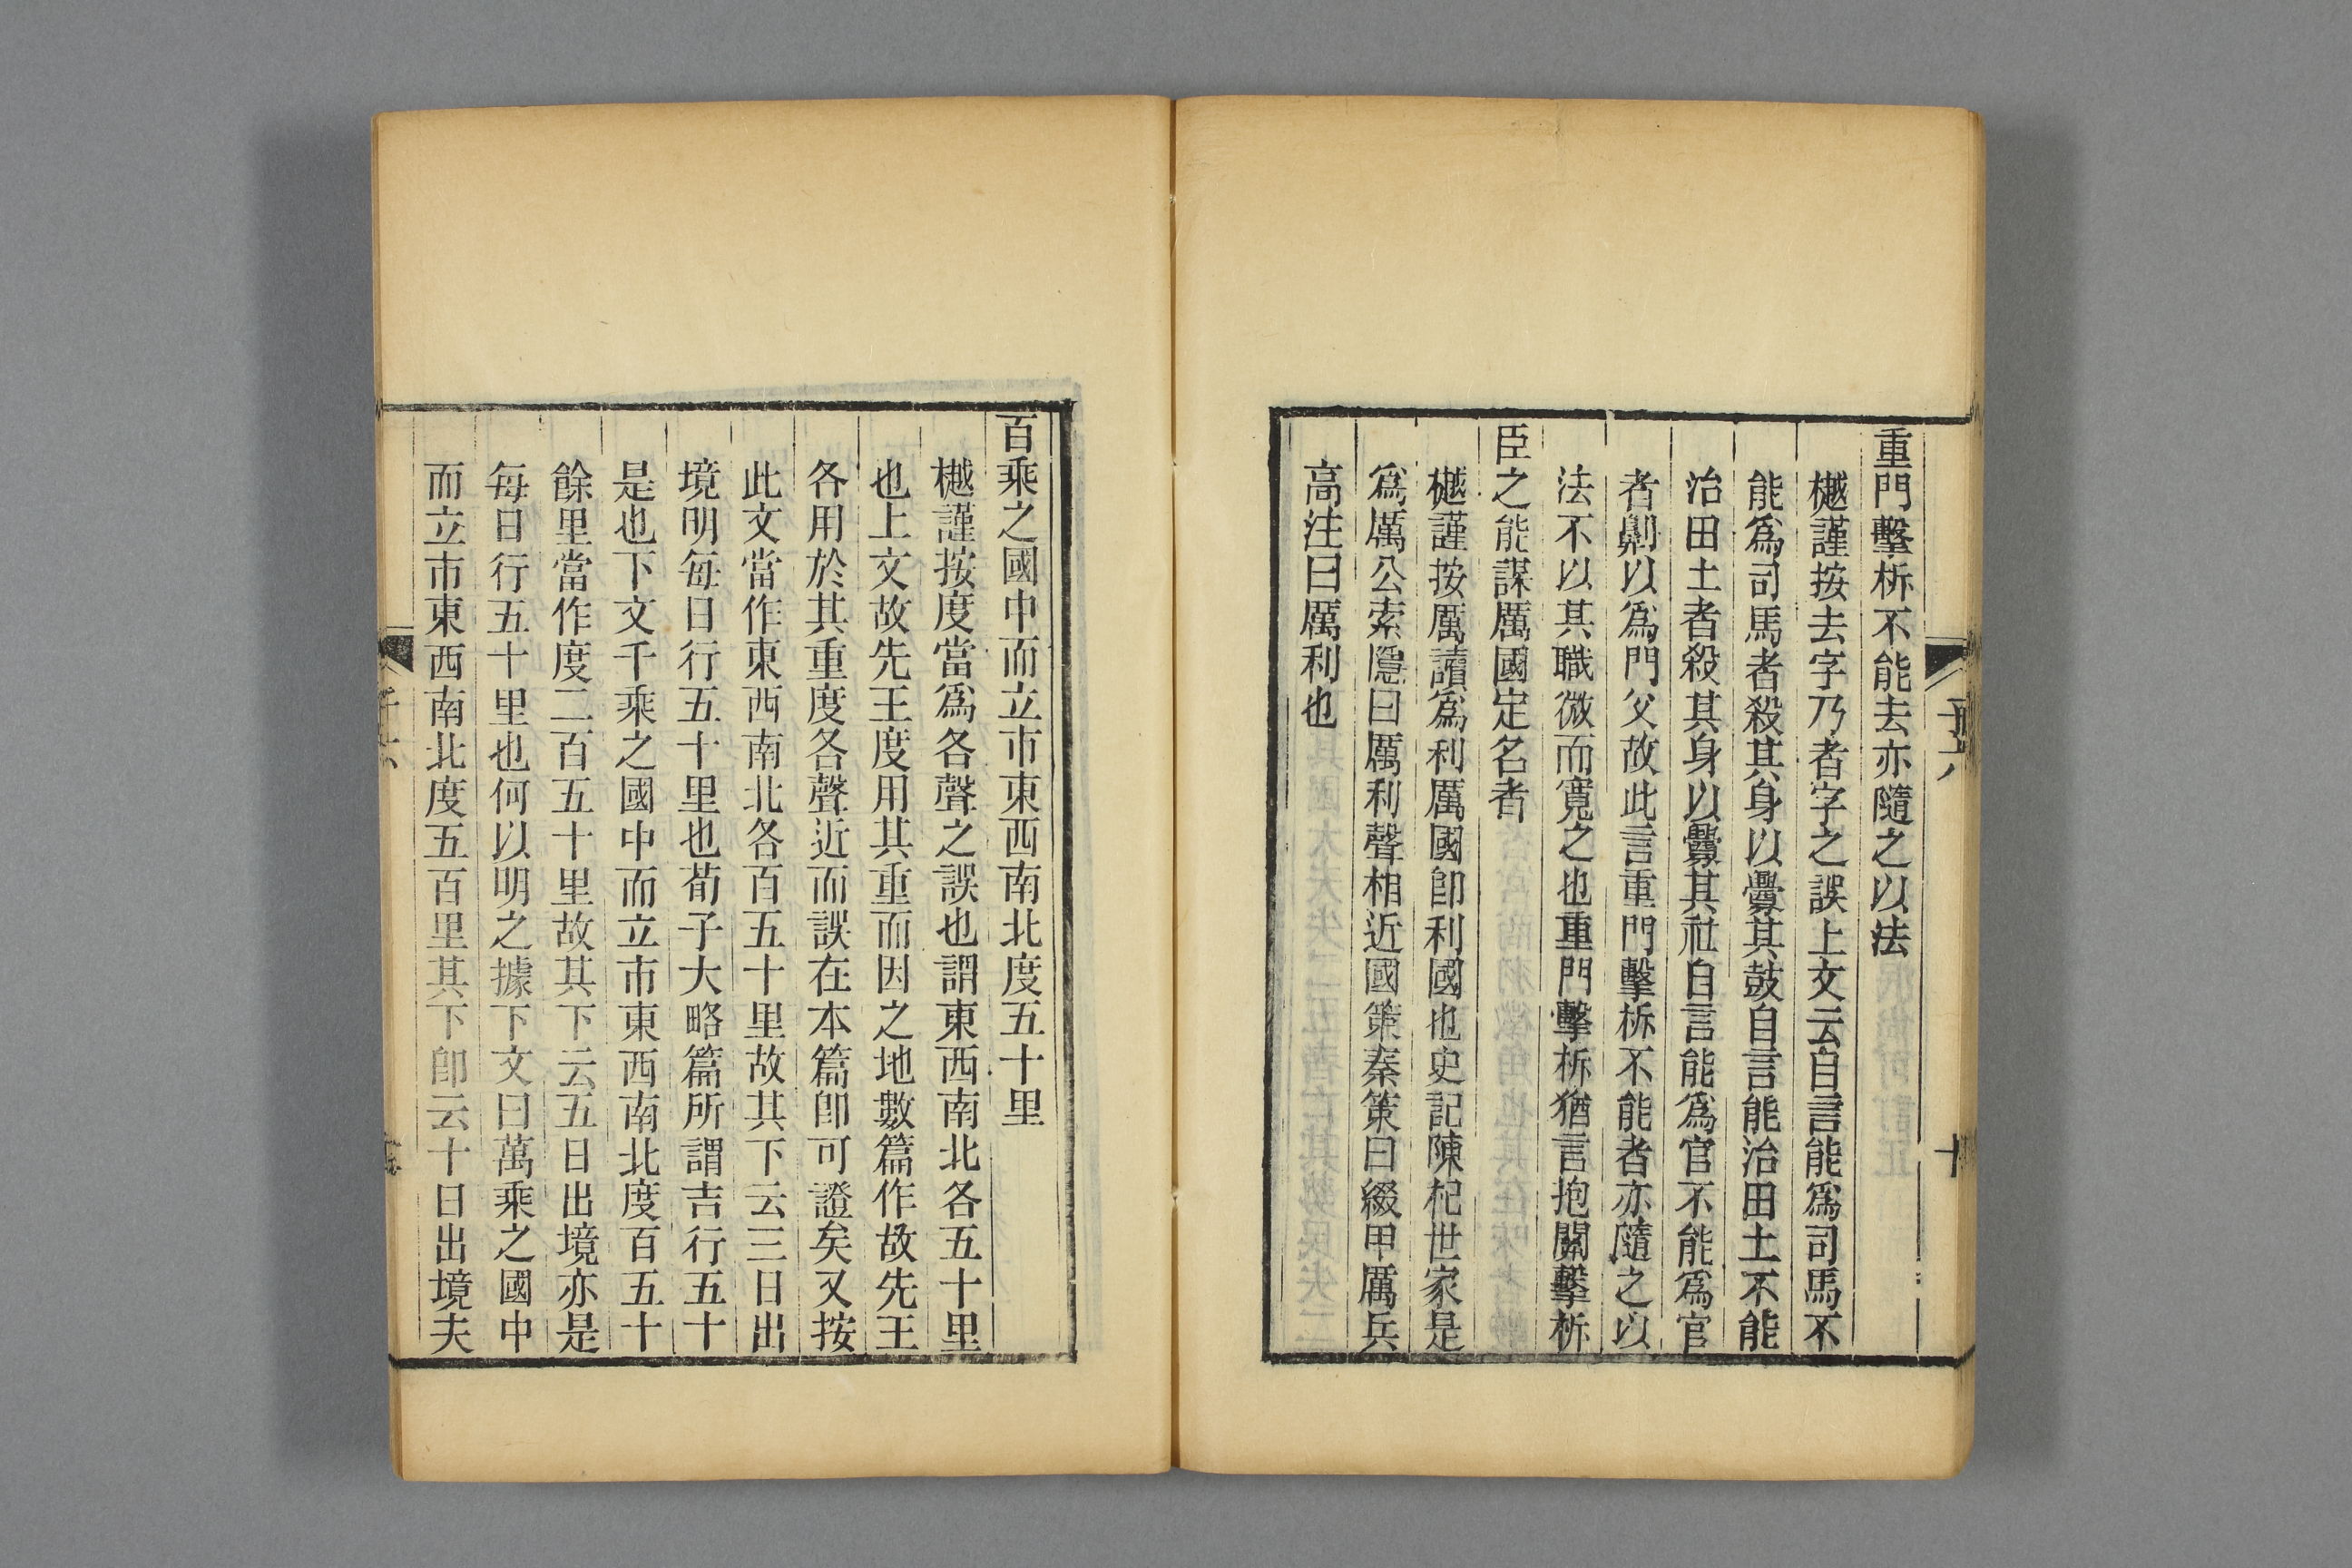 重門擊柝不能去亦隨之以法
樾謹按去字乃者字之誤上文云自言能爲司馬不
能爲司馬者殺其身以釁其鼓自言能治田土不能
治田土者殺其身以釁其社自言能爲官不能爲官
者劓以爲門父故此言重門擊柝不能者亦隨之以
法不以其職微而寬之也重門擊柝猶言抱關擊柝
臣之能謀厲國定名者
樾謹按厲讀爲利厲國卽利國也史記陳杞世家是
爲厲公索隱曰厲利聲相近國策秦策曰綴甲厲兵
高注曰厲利也
百乘之國中而立市東西南北度五十里
樾謹按度當爲各聲之誤也謂東西南北各五十里
也上文故先王度用其重而因之地數篇作故先王
各用於其重度各聲近而誤在本篇卽可證矣又按
此文當作東西南北各百五十里故其下云三日出
境明每日行五十里也荀子大略篇所謂吉行五十
是也下文千乘之國中而立市東西南北度百五十
餘里當作度二百五十里故其下云五日出境亦是
每日行五十里也何以明之據下文曰萬乘之國中
而立市東西南北度五百里其下卽云十日出境夫